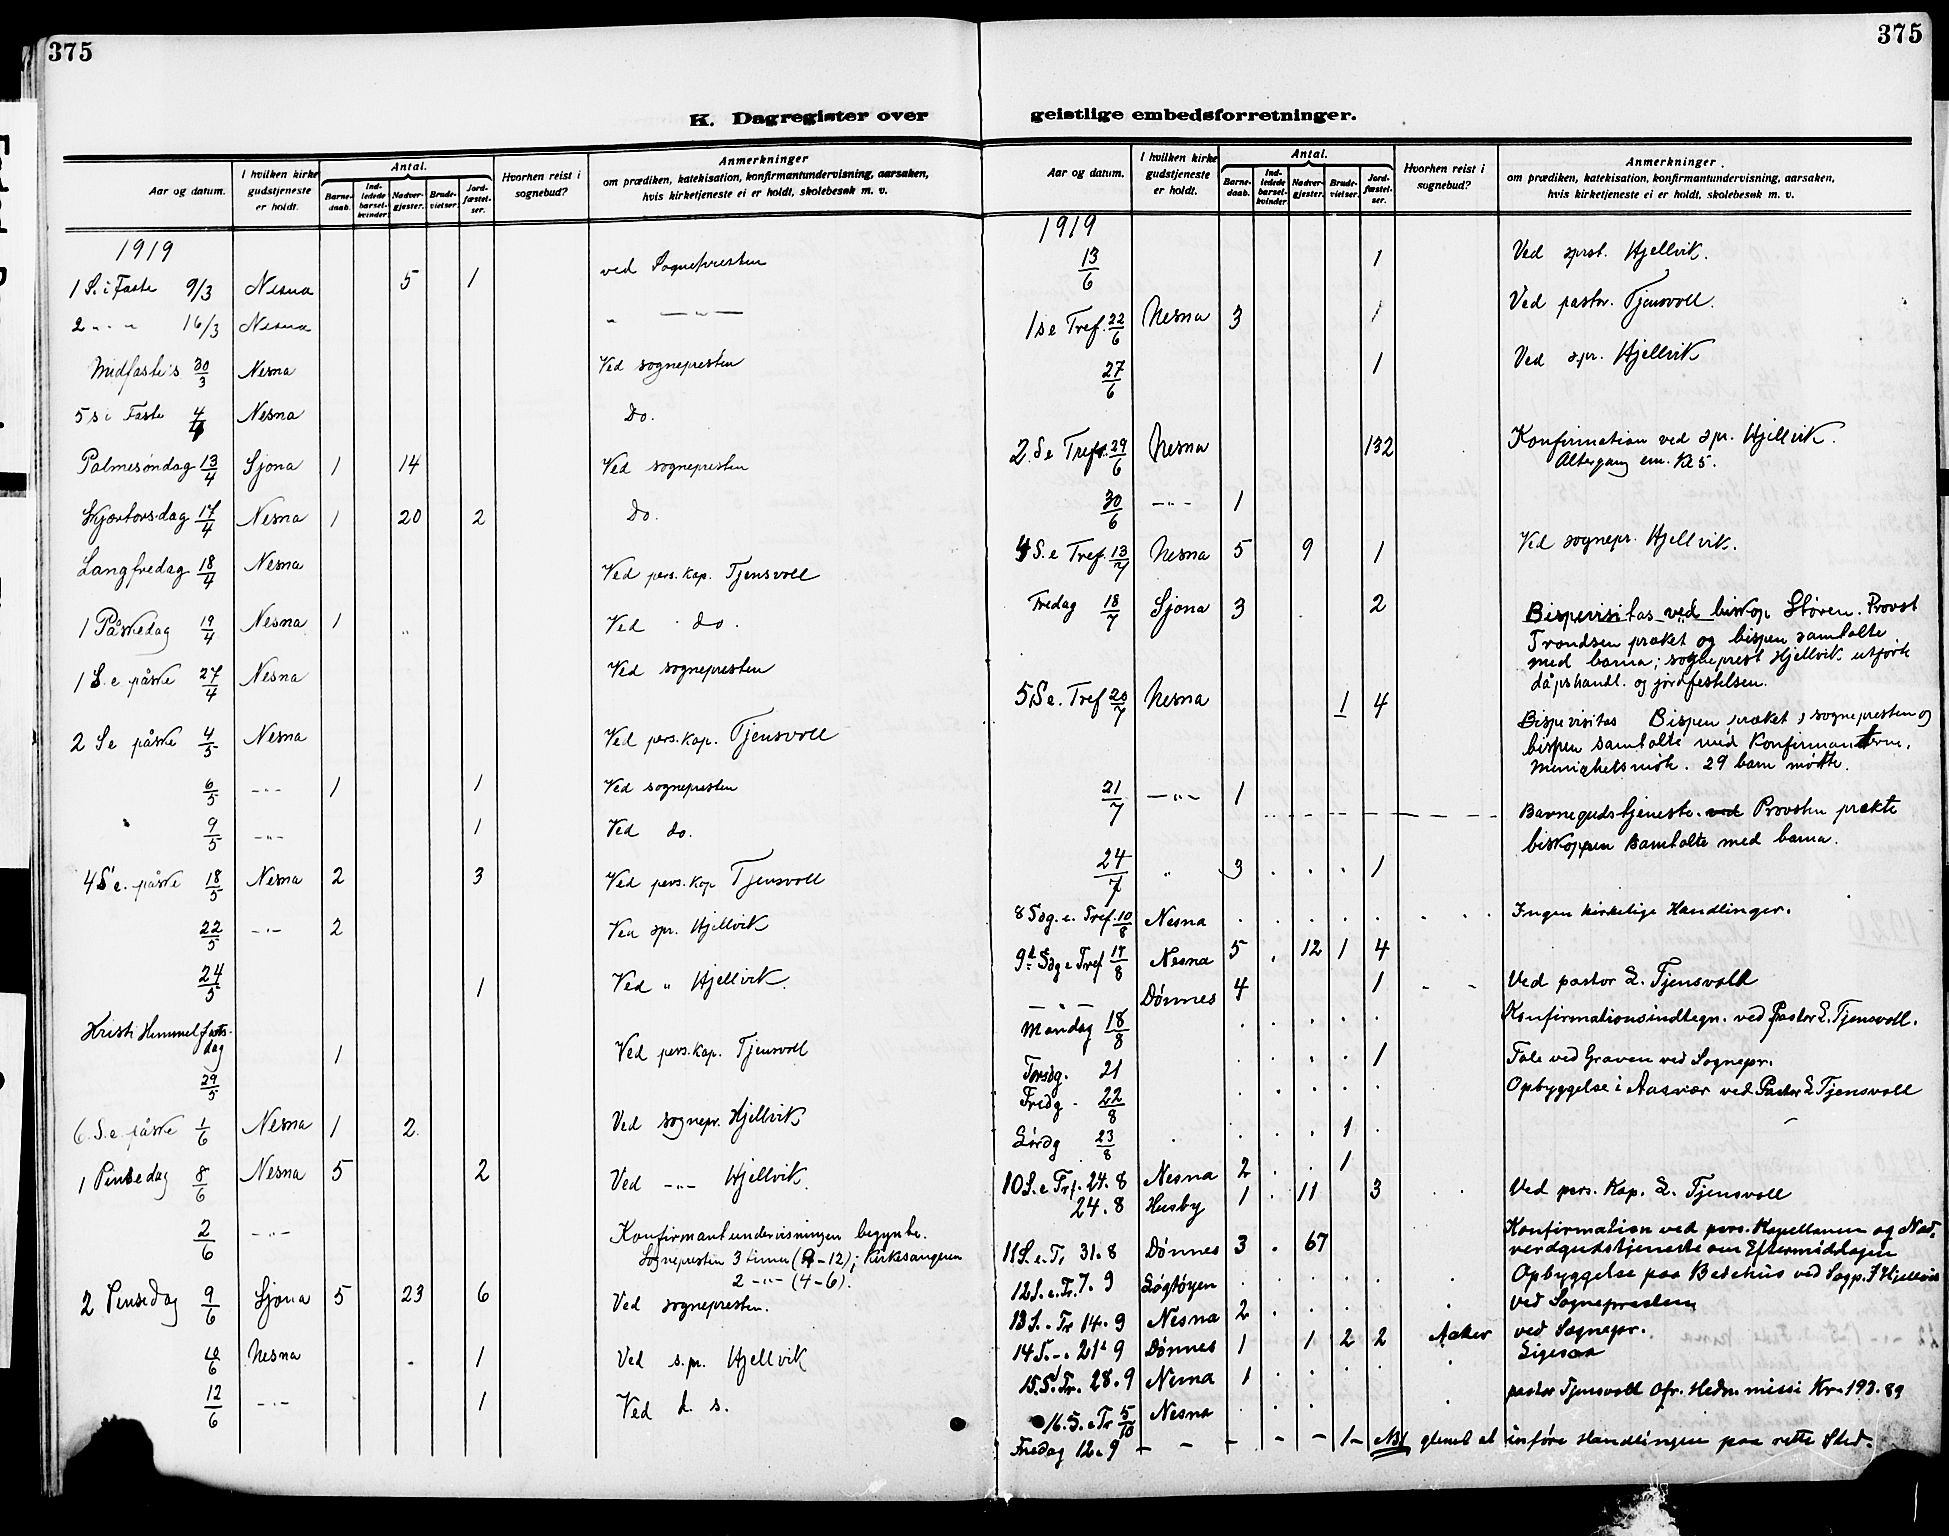 375
K. Dagregister over
Aar og datum.
I hvilken kirke gudstjeneste er holdt.
Antal.
Barne-daab.
Ind-ledede barsel-kvinder.
Nadver-gjester.
Brude-vielser.
Jord-fæstel-ser.
Hvorhen reist i sognebud?
Anmerkninger
om prædiken, katekisation, konfirmantundervisning, aarsaken,
hvis kirketjeneste ei er holdt, skolebesøk m. v.
1919
1 S. i Faste 9/3 Nesna 5 1 ved Sognepresten
2 " - " 16/3 Nesna " — " —
Midfaste s 30/3 Nesna Ved sognepresten
5 s i Faste 4/4 Nesna Do.
Palmesøndag 13/4 Sjona 1 14 Ved sognepresten
Skjærtorsdag 17/4 Nesna 1 20 2 Do.
Langfredag 18/4 Nesna Ved pers. kap. Tjensvoll
1 Påskedag 19/4 Nesna 1 Ved do.
1 S. e påske 27/4 Nesna Ved sognepresten
2 S e påske 4/5 Nesna Ved pers. kap. Tjensvoll
6/5 -"- 1 1 Ved sognepresten
9/5 -"- 1 Ved do.
4 S e. påske 18/5 Nesna 2 3 Ved pers. kap Tjensvoll
22/5 -"- 2 Ved spr. Hjellvik
24/5 1 Ved " Hjellvik.
Kristi Himmelfarts-
dag
29/5 1 Ved pers. kap. Tjensvoll
6. S. e. påske 1/6 Nesna 1 2 Ved sognepr. Hjellvik
1 Pinsedag 8/6 Nesna 5 2 Ved -"- Hjellvik.
2/6 -"- Konfirmantundervisningen begynte.
Sognepresten 3 timer (9-12); Kirkesangeren
2 -"- (4-6).
2 Pinsedag 9/6 Sjona 5 23 6 Ved sognepresten.
10/6 Nesna 1 Ved s.pr. Hjellvik
12/6 -"- 1 Ved d. s.
375
geistlige embedsforretninger.
Aar og datum.
I hvilken kirke gudstjeneste er holdt.
Antal.
Barne-daab.
Ind-ledede barsel-kvinder
Nadver-gjester.
Brude-vielser.
Jord-fæstel-ser.
Hvorhen reist i sognebud?
Anmerkninger.
om prædiken, katekisation, konfirmantundervisning, aarsaken,
hvis kirketjeneste ei er holdt, skolebesøk m. v.
1919
13/6 1 Ved sprst. Hjellvik.
1 s e Tref. 22/6 Nesna 3 1 Ved pastor. Tjensvoll.
27/6 1 Ved spr. Hjellvik
2. S e Tref. 29/6 Nesna 132 Konfirmation ved spr. Hjellvik.
Altergang em. Kl 5.
30/6 -"- 1
4 S. e Tref. 13/7 Nesna 5 9 1 Ved sognepr. Hjellvik.
Fredag 18/7 Sjona 3 2 Bispevisitas ved biskop Støren. Provst
Trondsen præket og bispen samtalte
med barna; sogneprest Hjellvik utførte
dåpshandl. og jordfestelsen.
5 S e. Tref 20/7 Nesna 1 4 Bispevisitas Bispen præket, sognepresten og
bispen samtalte med Konfirmanterne.
Menighetsmøte. 29 barn møtte.
21/7 -"- 1 Barnegudstjeneste. ved Provsten prækte
biskoppen samtalte med barna.
24/7 " 3 1
8 Søg. e. Tref. 10/8 Nesna Ingen kirkelige Handlinger.
9d Søg e Tref 17/8 Nesna 5 12 1 4
- " - Dönnes 4 1 Ved pastor L. Tjensvold
Mandag 18/8 Konfirmationsindtegn. ved Pastor L. Tjensvoll.
Torsdg. 21 1 Tale ved Graven ved Sognepr.
Fredg - 22/8 Opbyggelse i Aasvær ved Pastor L Tjensvoll
Lördg 23/8 1
10 S. e Trf. 24. 8 Nesna 2 1
24. 8 Husby 1 11 3 Ved pers. Kap. L. Tjensvoll
11 S. e. Tr. 31. 8 Dönnes 3 67 Konfirmation ved pers. Kapellanen og Nad-
verdgudstjeneste om Eftermiddagen
12 S. e. Tr. 7. 9 Opbyggelse paa Bedehus ved Sogp. J Hjellvik
13 S. - Tr 14. 9 Nesna 2 ved Sognepresten
14 S. - . 21. 9 Dönnes 1 1 2 2 Aaker ved Sognepr.
Ligesaa
15. S. Tr. 28. 9 Nesna 1 pastor Tjensvold Ofr. Hedn. missi Kr. 192.89
16. S. e Tr 5/10 Nesna
Fredag 12. 9 - - - - - 1 - NB glemt at införe Handlingen paa rette Sted.